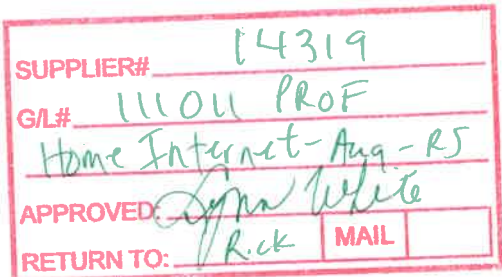 SUPPLIER# 14319
G/L# 111011 PROF
Home Internet - Aug - RS
APPROVED: Lynn White
RETURN TO: Rick MAIL